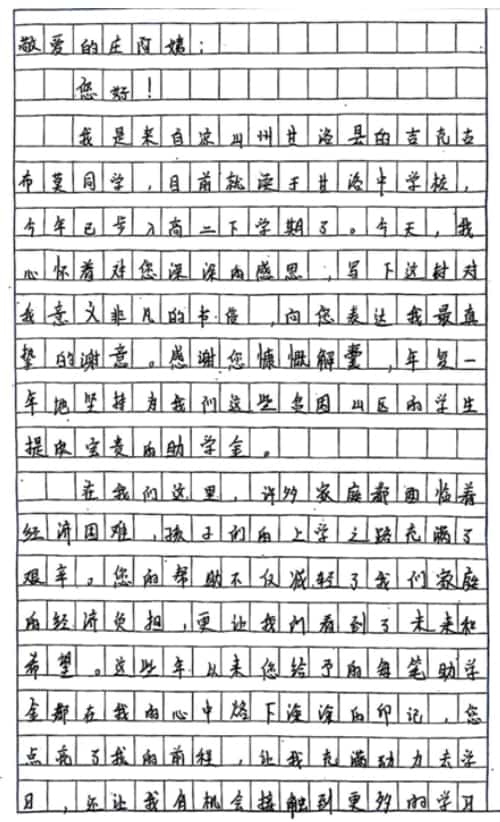 敬爱的庄阿姨：
您好！
我是来自凉山州甘洛县的吉克古
布莫同学，目前就读于甘洛中学校，
今年已步入高二下学期了。今天，我
心怀着对您深深的感恩，写下这封对
我意义非凡的书信，向您表达我最真
挚的谢意。感谢您慷慨解囊，年复一
年地坚持为我们这些贫困山区的学生
提供宝贵的助学金。
在我们这里，许多家庭都面临着
经济困难，孩子们的上学之路充满了
艰辛。您的帮助不仅减轻了我们家庭
的经济负担，更让我们看到了未来和
希望。这些年以来您给予的每笔助学
金都在我的心中烙下深深的印记，您
点亮了我的前程，让我充满动力去学
习，还让我有机会接触到更多的学习